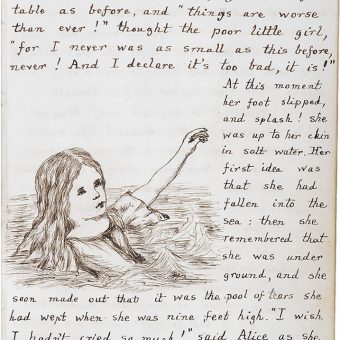 table as before, and "things are worse
than ever!" thought the poor little girl,
"for I never was as small as this before,
never! And I declare it's too bad, it is!"
At this moment
her foot slipped,
and splash! she
was up to her chin
in salt water. Her
first idea was
that she had
fallen into the
sea: then she
remembered that
she was under
ground, and she
soon made out that it was the pool of tears she
had wept when she was nine feet high. "I wish
I hadn't cried so much!" said Alice as she